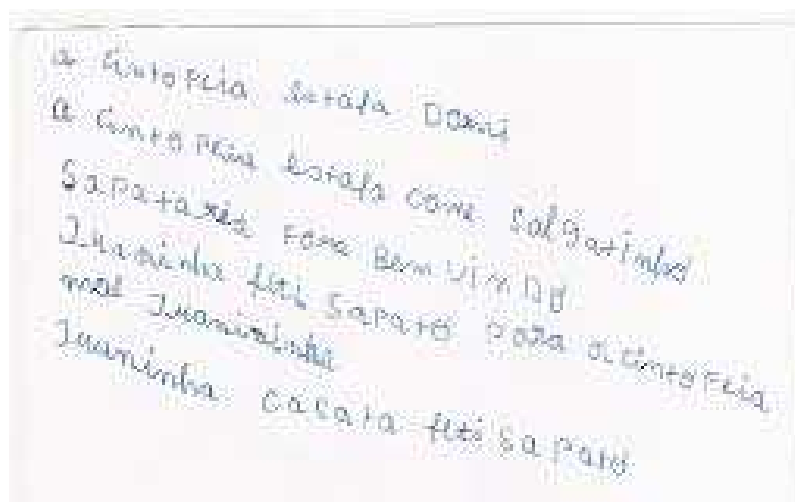 a CintoPeia Estafa Doemi
a CintoPeia Estafa come salgatinho
SaPataria Fore Bem VinDo
Juaninha feti SaPato Para a CintoPeia
mae Juanininha
Juaninha cacata feti SaPato